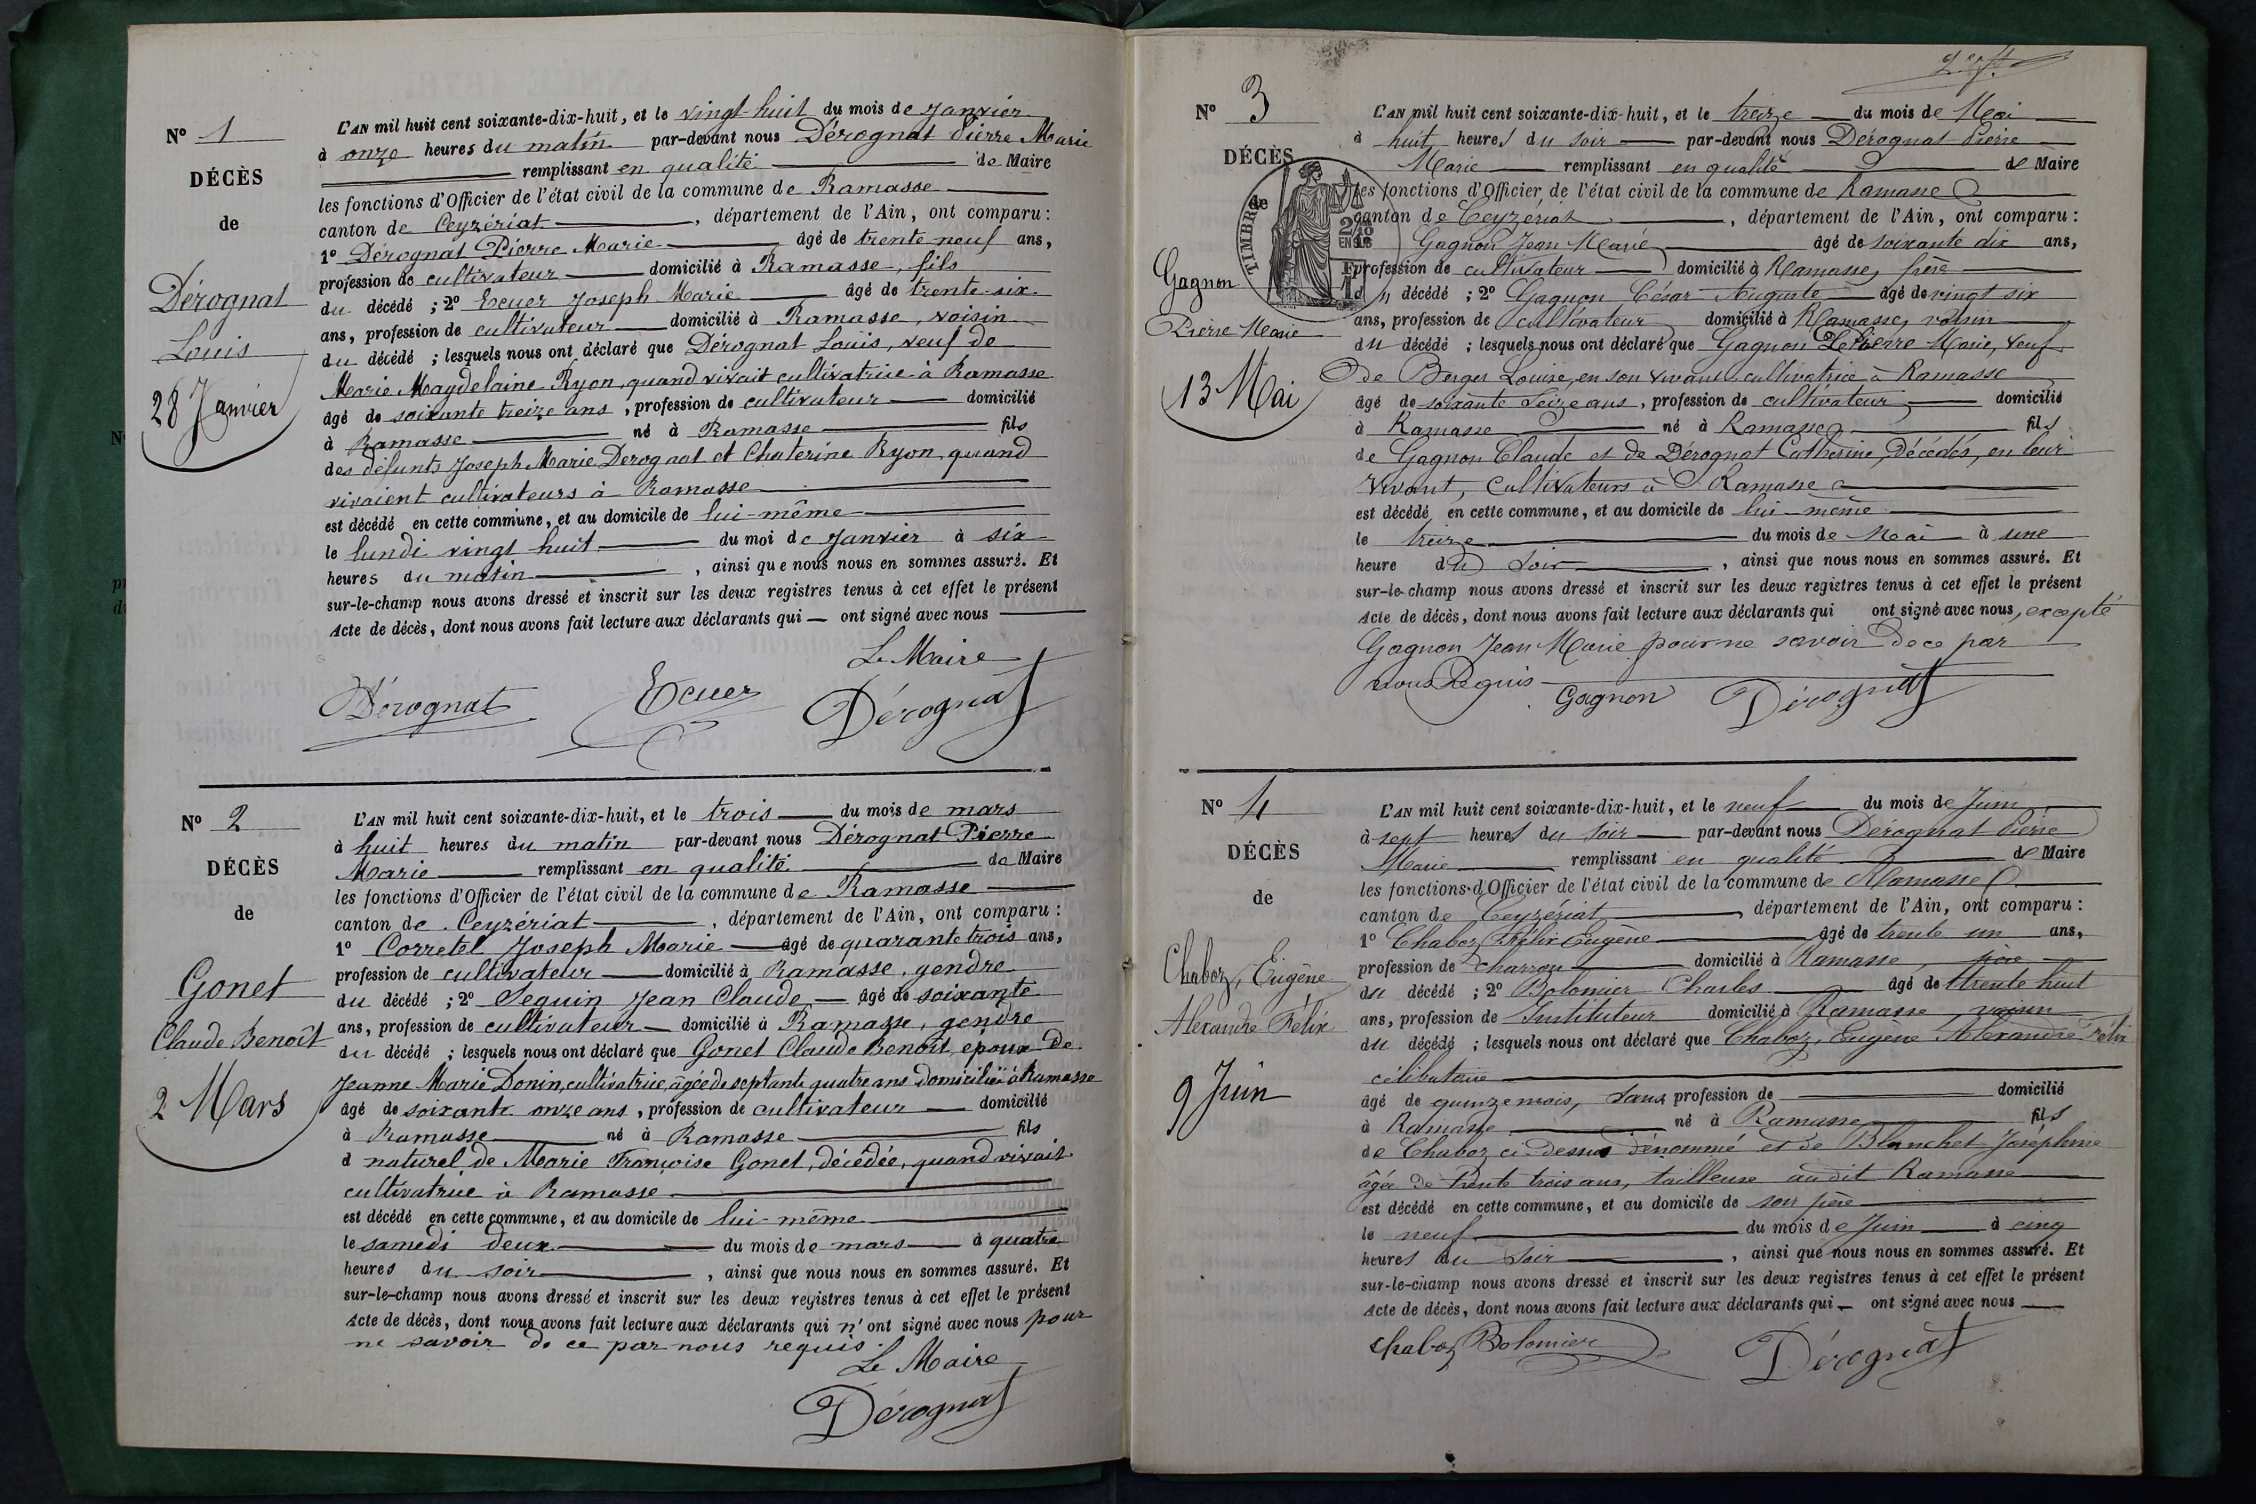 N° 1
DÉCÈS
de
Dérognat
Louis
28 Janvier
L'AN mil huit cent soixante-dix-huit, et le vingt-huit du mois de Janvier
à onze heures du matin par-devant nous Dérognat Pierre Marie
remplissant en qualité de Maire
les fonctions d'Officier de l'état civil de la commune de Ramasse
canton de Ceyzériat, département de l'Ain, ont comparu :
1° Dérognat Pierre Marie âgé de trente neuf ans,
profession de cultivateur domicilié à Ramasse, fils
du décédé ; 2° Ecuer Joseph Marie âgé de trente-six
ans, profession de cultivateur domicilié à Ramasse, voisin
du décédé ; lesquels nous ont déclaré que Dérognat Louis, veuf de
Marie Magdelaine Ryon, quand vivait cultivatrice à Ramasse
âgé de soixante treize ans, profession de cultivateur domicilié
à Ramasse né à Ramasse fils
des défunts Joseph Marie Derognat et Chaterine Ryon, quand
vivaient cultivateurs à Ramasse
est décédé en cette commune, et au domicile de lui-même
le lundi vingt huit du moi de Janvier à six
heures du matin, ainsi que nous nous en sommes assuré. Et
sur-le-champ nous avons dressé et inscrit sur les deux registres tenus à cet effet le présent
Acte de décès, dont nous avons fait lecture aux déclarants qui ont signé avec nous
Le Maire
Dérognat Ecuer Dérognat
N° 2
DÉCÈS
de
Gonet
Claude Benoît
2 Mars
L'AN mil huit cent soixante-dix-huit, et le trois du mois de mars
à huit heures du matin par-devant nous Dérognat Pierre
Marie remplissant en qualité de Maire
les fonctions d'Officier de l'état civil de la commune de Ramasse
canton de Ceyzériat, département de l'Ain, ont comparu :
1° Corretel Joseph Marie âgé de quarante trois ans,
profession de cultivateur domicilié à Ramasse, gendre
du décédé ; 2° Seguin Jean Claude âgé de soixante
ans, profession de cultivateur domicilié à Ramasse, gendre
du décédé ; lesquels nous ont déclaré que Gonet Claude Benoît, époux de
Jeanne Marie Donin, cultivatrice, âgée de septante quatre ans domiciliée à Ramasse
âgé de soixante onze ans, profession de cultivateur domicilié
à Ramasse né à Ramasse fils
naturel de Marie Françoise Gonet, décédée, quand vivait
cultivatrice à Ramasse
est décédé en cette commune, et au domicile de lui-même
le samedi deux du mois de mars à quatre
heures du soir, ainsi que nous nous en sommes assuré. Et
sur-le-champ nous avons dressé et inscrit sur les deux registres tenus à cet effet le présent
Acte de décès, dont nous avons fait lecture aux déclarants qui n'ont signé avec nous pour
ne savoir de ce par nous requis.
Le Maire
Dérognat
N° 3
DÉCÈS
de
TIMBRE
Gagnon
Pierre Marie
13 Mai
L'AN mil huit cent soixante-dix-huit, et le treize du mois de Mai
à huit heures du soir par-devant nous Dérognat Pierre
Marie remplissant en qualité de Maire
les fonctions d'Officier de l'état civil de la commune de Ramasse
canton de Ceyzériat, département de l'Ain, ont comparu :
Gagnon Jean Marie âgé de soixante dix ans,
profession de cultivateur domicilié à Ramasse, frère
du décédé ; 2° Gagnon César Auguste âgé de vingt six
ans, profession de cultivateur domicilié à Ramasse, voisin
du décédé ; lesquels nous ont déclaré que Gagnon Pierre Marie, veuf
de Berger Louise, en son vivant cultivatrice à Ramasse
âgé de soixante seize ans, profession de cultivateur domicilié
à Ramasse né à Ramasse fils
de Gagnon Claude et de Dérognat Catherine, Décédés, en leur
vivant, cultivateurs à Ramasse
est décédé en cette commune, et au domicile de lui-même
le treize du mois de Mai à une
heure du soir, ainsi que nous nous en sommes assuré. Et
sur-le-champ nous avons dressé et inscrit sur les deux registres tenus à cet effet le présent
Acte de décès, dont nous avons fait lecture aux déclarants qui ont signé avec nous, excepté
Gagnon Jean Marie pour ne savoir de ce par
nous Requis
Gagnon Dérognat
N° 4
DÉCÈS
de
Chaboz, Eugène
Alexandre Félix
9 Juin
L'AN mil huit cent soixante-dix-huit, et le neuf du mois de Juin
à sept heures du soir par-devant nous Dérognat Pierre
Marie remplissant en qualité de Maire
les fonctions d'Officier de l'état civil de la commune de Ramasse
canton de Ceyzériat, département de l'Ain, ont comparu :
1° Chaboz Félix Eugène âgé de trente un ans,
profession de charron domicilié à Ramasse, père
du décédé ; 2° Bolomier Charles âgé de trente huit
ans, profession de Instituteur domicilié à Ramasse voisin
du décédé ; lesquels nous ont déclaré que Chaboz, Eugène Alexandre Félix
célibataire
âgé de quinze mois, sans profession de domicilié
à Ramasse né à Ramasse fils
de Chaboz ci-dessus dénommé et de Blanchet Joséphine
âgée de trente trois ans, tailleuse audit Ramasse
est décédé en cette commune, et au domicile de son père
le neuf du mois de Juin à cinq
heures du soir, ainsi que nous nous en sommes assuré. Et
sur-le-champ nous avons dressé et inscrit sur les deux registres tenus à cet effet le présent
Acte de décès, dont nous avons fait lecture aux déclarants qui ont signé avec nous
Chaboz Bolomier Dérognat